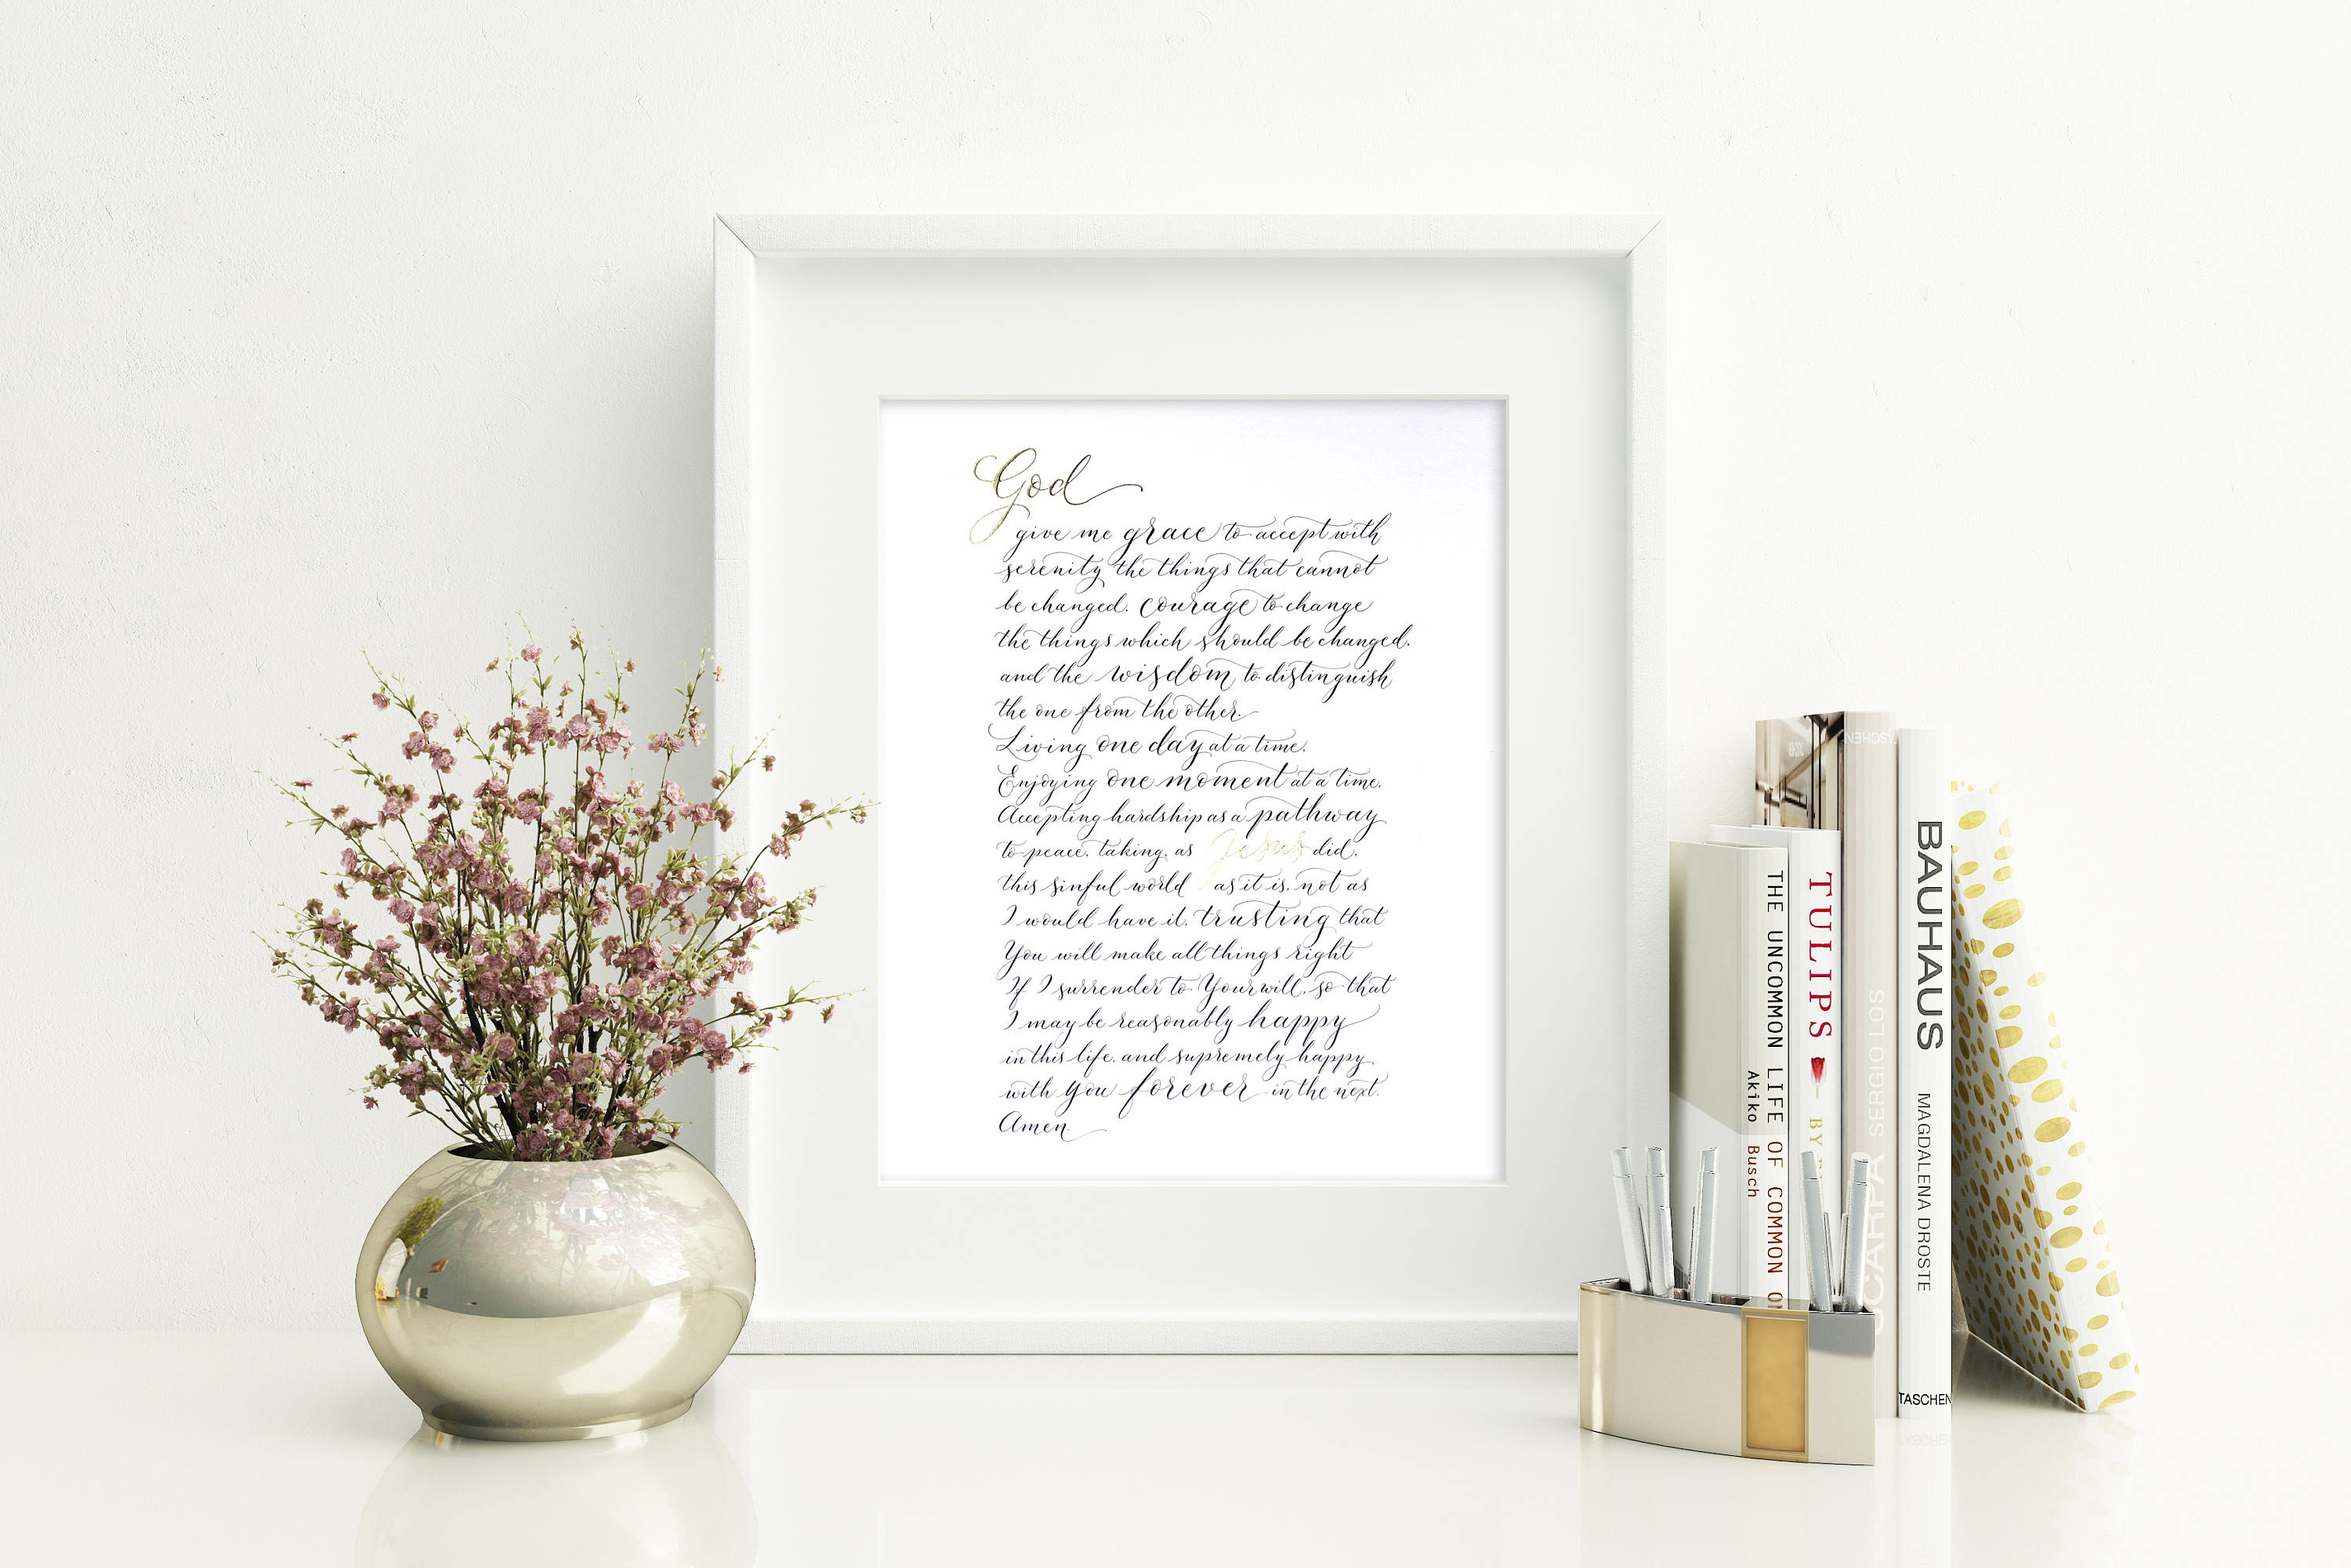 God
give me grace to accept with
serenity the things that cannot
be changed, courage to change
the things which should be changed,
and the wisdom to distinguish
the one from the other.
Living one day at a time,
Enjoying one moment at a time,
Accepting hardship as a pathway
to peace, taking, as Jesus did,
this sinful world as it is, not as
I would have it, trusting that
You will make all things right
If I surrender to Your will, so that
I may be reasonably happy
in this life, and supremely happy
with You forever in the next.
Amen.
THE UNCOMMON LIFE OF COMMON
Akiko Busch
TULIPS BY
TASCHEN
SCARPA SERGIO LOS
BAUHAUS MAGDALENA DROSTE
TASCHEN